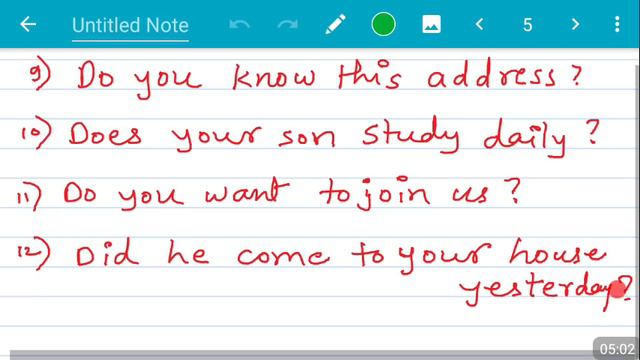 Untitled Note
5
9) Do you know this address?
10) Does your son study daily?
11) Do you want to join us?
12) Did he come to your house
yesterday?
05:02